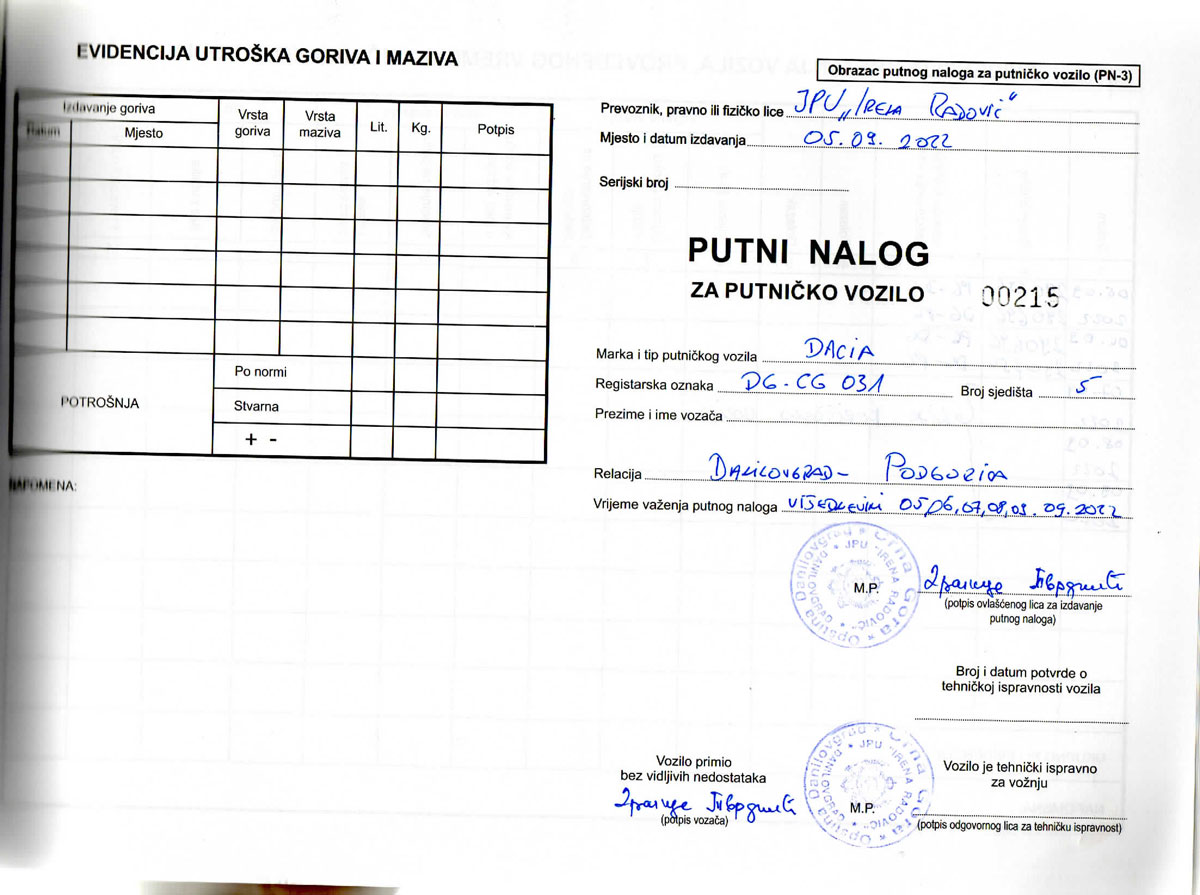 EVIDENCIJA UTROŠKA GORIVA I MAZIVA
Izdavanje goriva
Datum
Mjesto
Vrsta goriva
Vrsta maziva
Lit.
Kg.
Potpis
POTROŠNJA
Po normi
Stvarna
+ -
NAPOMENA:
Obrazac putnog naloga za putničko vozilo (PN-3)
Prevoznik, pravno ili fizičko lice JPU „Irena Radović“
Mjesto i datum izdavanja 05.09. 2022
Serijski broj
PUTNI NALOG
ZA PUTNIČKO VOZILO 00215
Marka i tip putničkog vozila DACIA
Registarska oznaka DG-CG 031 Broj sjedišta 5
Prezime i ime vozača
Relacija DANILOVGRAD - PODGORICA
Vrijeme važenja putnog naloga 05,06,07,08,09.09.2022
Opština Danilovgrad * Crna Gora
JPU "IRENA RADOVIĆ" * DANILOVGRAD
M.P.
(potpis ovlašćenog lica za izdavanje
putnog naloga)
Broj i datum potvrde o
tehničkoj ispravnosti vozila
Vozilo primio
bez vidljivih nedostataka
(potpis vozača)
Opština Danilovgrad * Crna Gora
JPU "IRENA RADOVIĆ" * DANILOVGRAD
M.P.
Vozilo je tehnički ispravno
za vožnju
(potpis odgovornog lica za tehničku ispravnost)